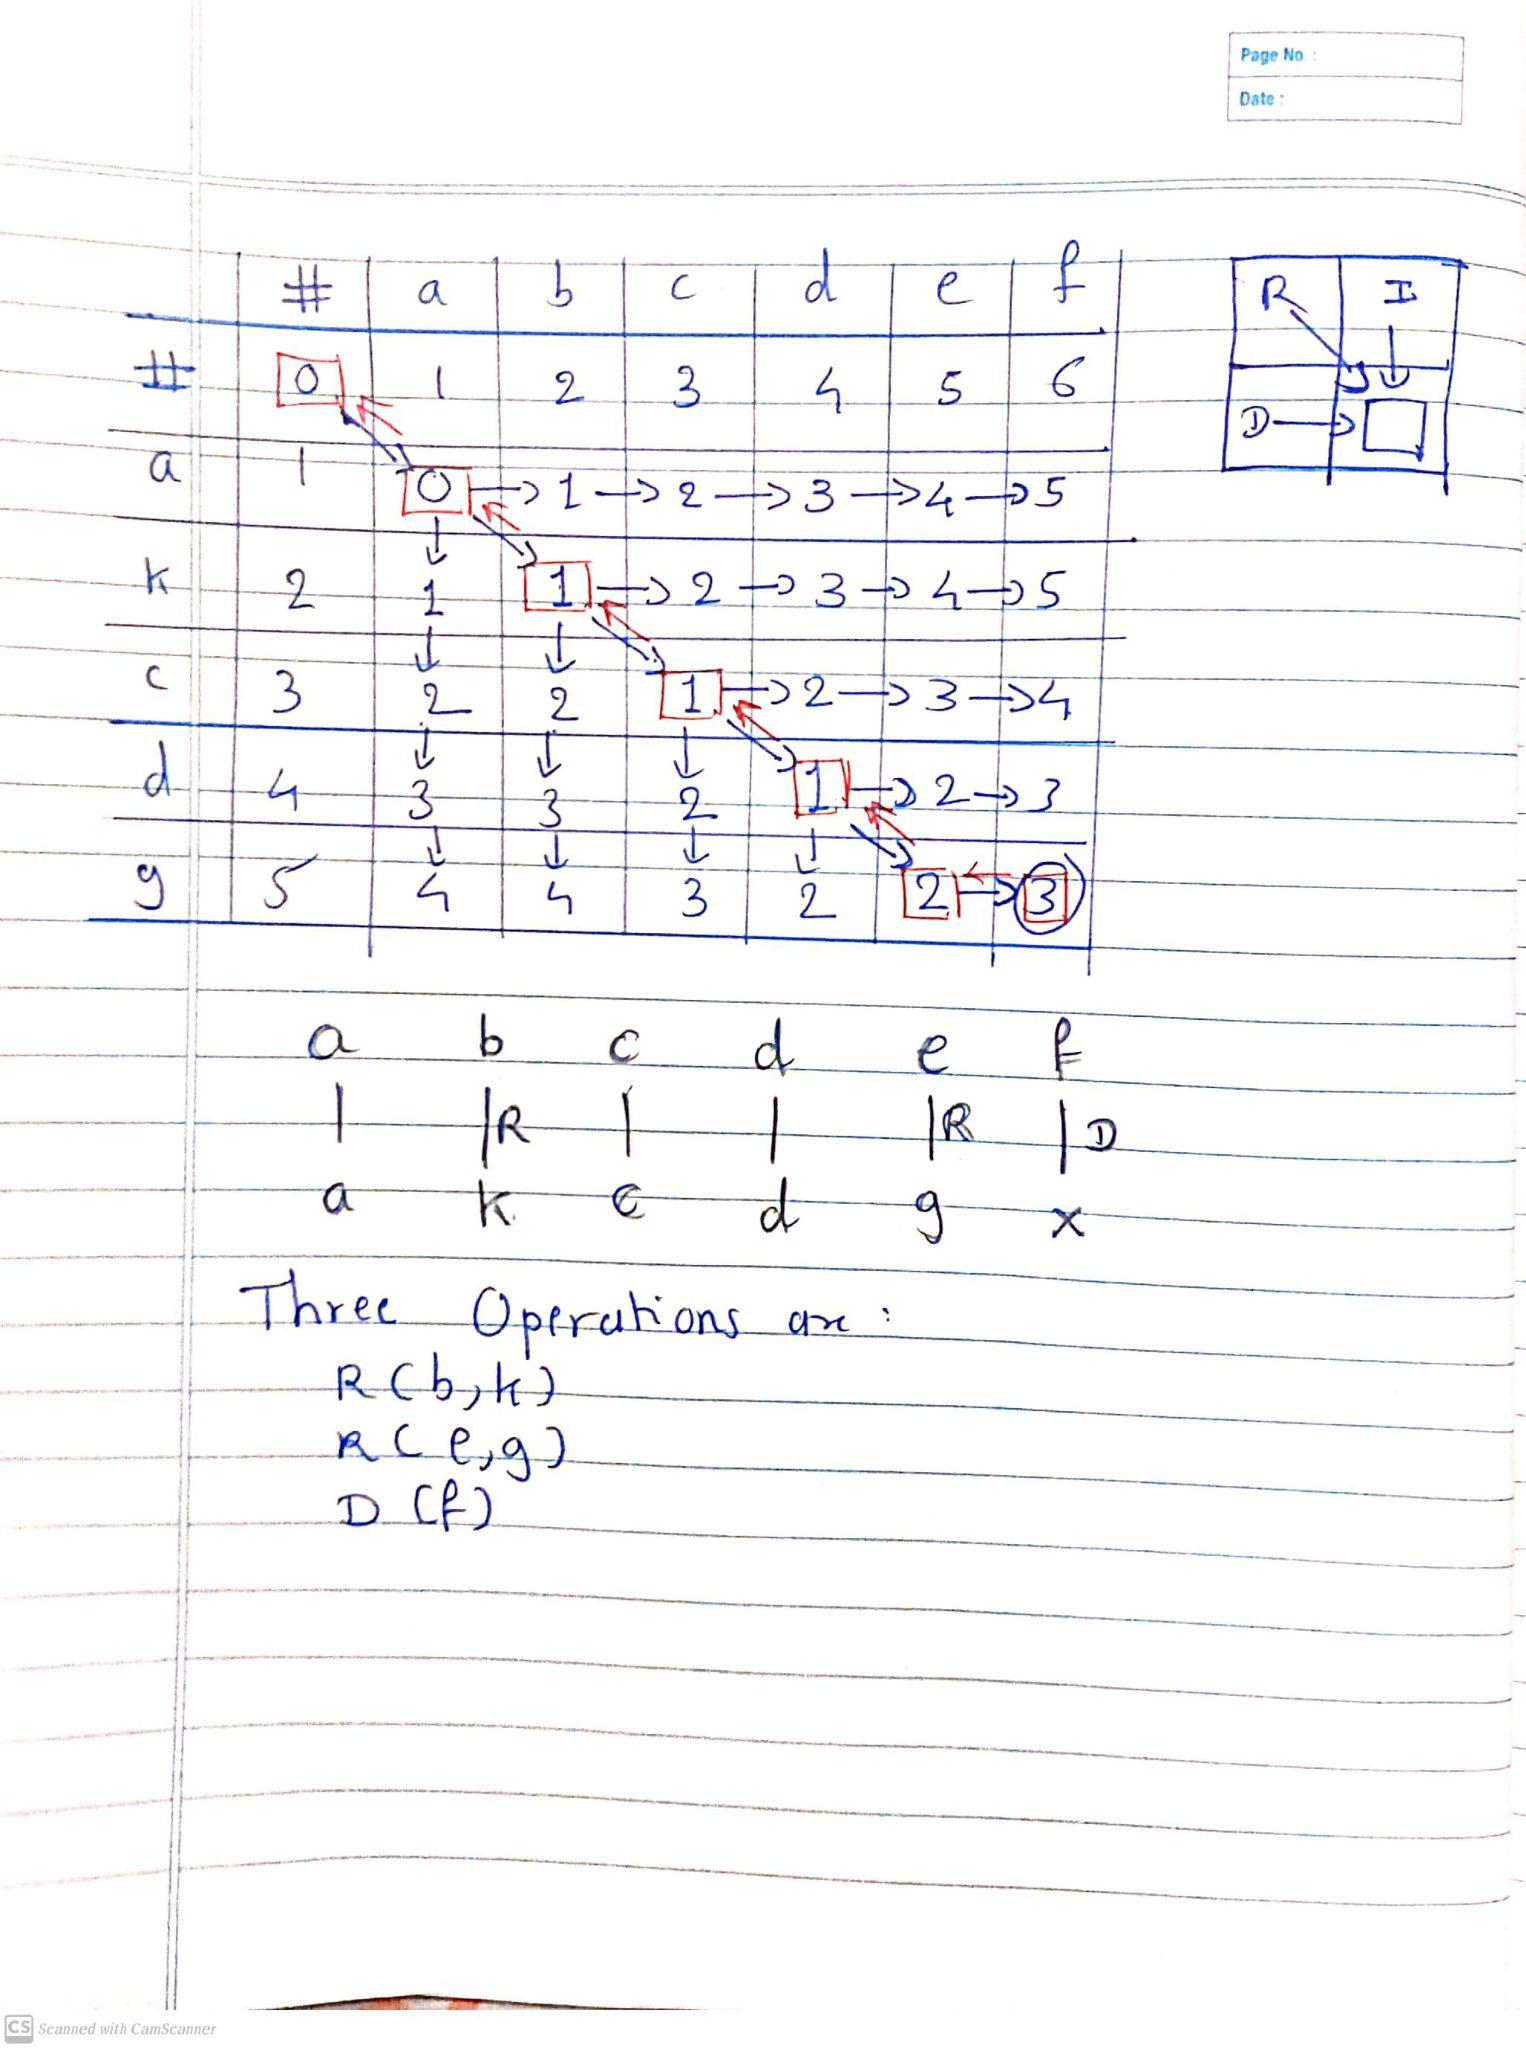 Page No. :
Date :
# a b c d e f
# 0 1 2 3 4 5 6
a 1 0 → 1 → 2 → 3 → 4 → 5
k 2 1 1 → 2 → 3 → 4 → 5
c 3 2 2 1 → 2 → 3 → 4
d 4 3 3 2 1 → 2 → 3
g 5 4 4 3 2 2 → 3
R I
D →
a b c d e f
| |R | | |R |D
a k c d g x
Three Operations are :
R (b,k)
R (e,g)
D (f)
CS Scanned with CamScanner